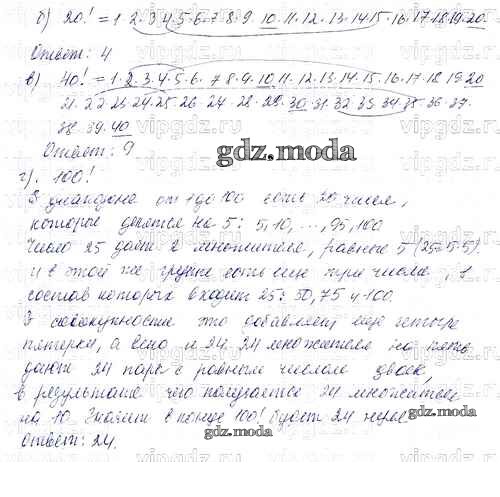 б) 20! = 1·2·3·4·5·6·7·8·9·10·11·12·13·14·15·16·17·18·19·20.
Ответ: 4
в) 40! = 1·2·3·4·5·6·7·8·9·10·11·12·13·14·15·16·17·18·19·20
21·22·23·24·25·26·27·28·29·30·31·32·33·34·35·36·37·
38·39·40
Ответ: 9
gdz.moda
г). 100!
В от 1 до 100 есть 20 чисел,
которое делятся на 5: 5, 10, ..., 95, 100
Число 25 дает 2 множителя, равные 5 (25=5·5).
и в этой же группе есть еще три числа, в
состав которых входит 25: 50, 75 и 100.
В совокупности это добавляет еще четыре
пятерки, а всего и 24. 24 множителя на пять
дают 24 пары с равным числом двоек,
в результате чего получается 24 множителя
на 10. Значит в конце 100! будет 24 нуля
gdz.moda
gdz.moda
Ответ: 24.